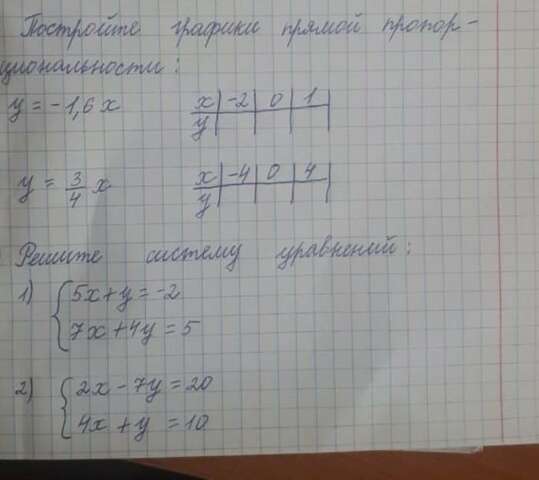 Постройте графики прямой пропор-
циональности:
y = -1,6x
x | -2 | 0 | 1
y
y = 3/4 x
x | -4 | 0 | 4
y
Решите систему уравнений:
1) { 5x + y = -2
7x + 4y = 5
2) { 2x - 7y = 20
4x + y = 10